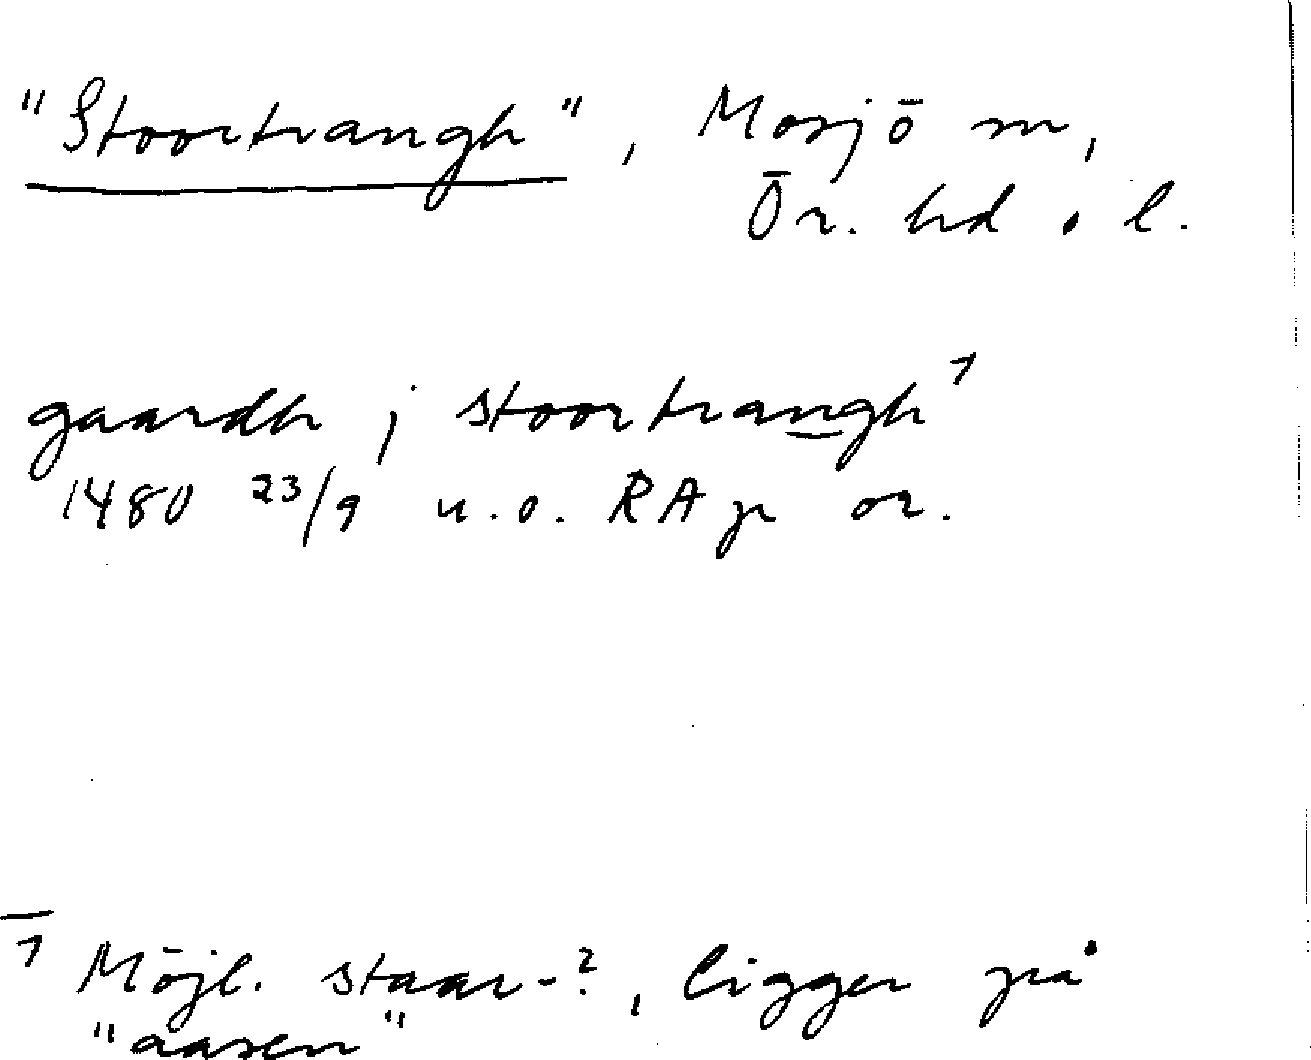 "Stoortrangh", Mosjö sn,
Ör. hd o. l.
gaardh j stoortrangh¹
1480 23/9 u.o. RAp or.
¹ Möjl. staar-?, ligger på
"aasen"